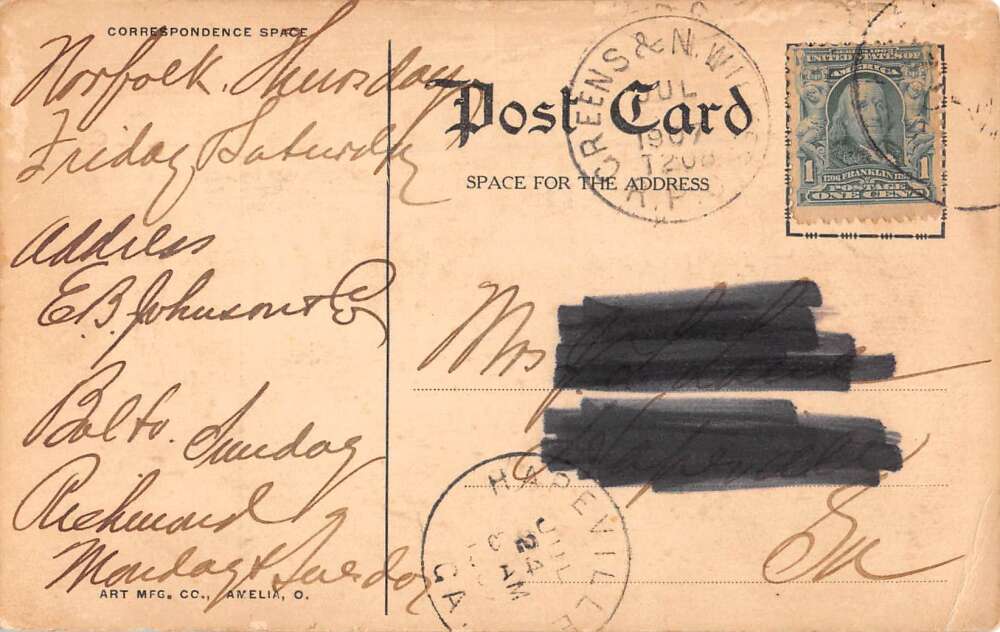 CORRESPONDENCE SPACE
Norfolk. Thursday
Friday Saturday
Address
E.B. Johnson & Co
Balto. Sunday
Richmond
Monday & Tuesday
ART MFG. CO., AMELIA, O.
Post Card
SPACE FOR THE ADDRESS
GREENS & N. WIL
JUL
1907
R.P.O
UNITED STATES OF
AMERICA
1 1
FRANKLIN
POSTAGE
ONE CENT
Mrs
Ga
HAPEVILLE
JUL
24
AM
GA.